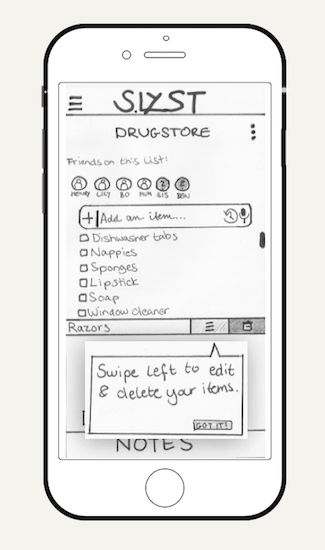 S.LYST
DRUGSTORE
Friends on this List:
HENRY LILY BO MUM SIS BEN
Add an item...
Dishwasher tabs
Nappies
Sponges
Lipstick
Soap
Window cleaner
Razors
Swipe left to edit
& delete your items.
GOT IT!
NOTES